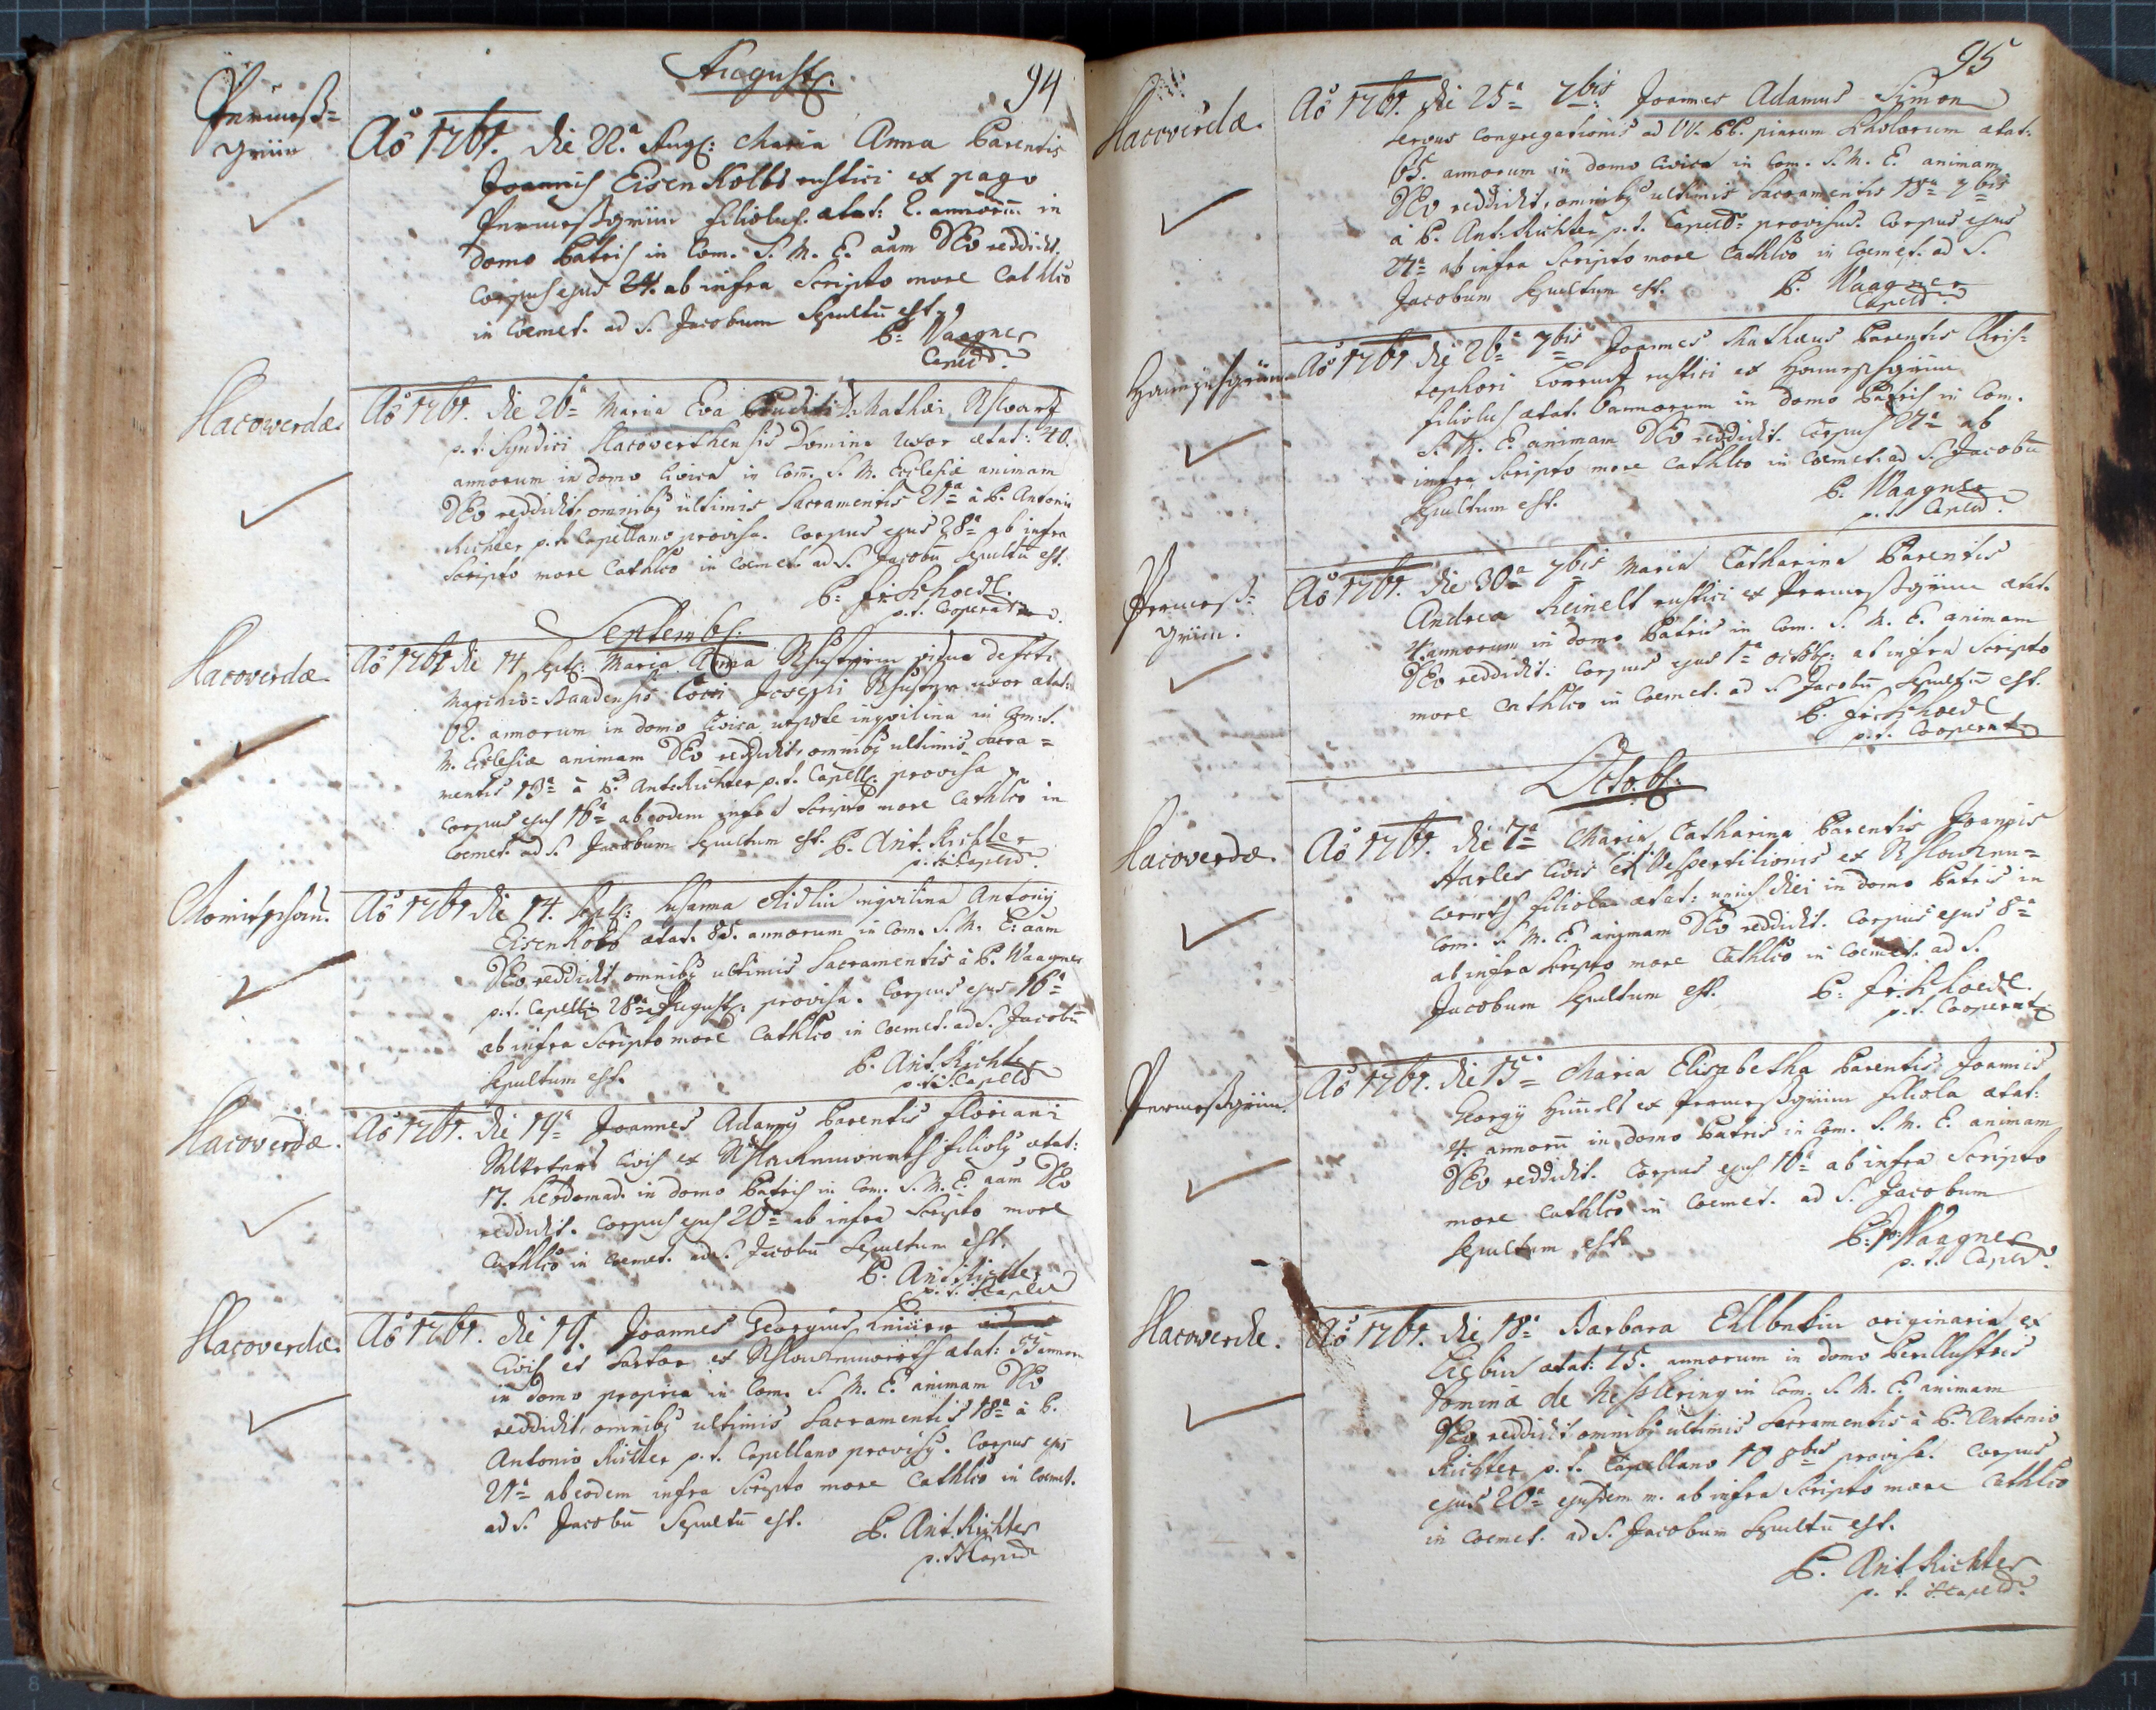 94
August:
Permesß=
grün
Aō 1761. die 22.ª Aug: Maria Anna Parentis
Joannis Eisenkolbs rustici ex pago
Permesßgrün filiolus. ætat: 2. annorū in
domo Patris in Com. S. M. E. aām DEo reddidit.
Corpus ejus 24. ab infra Scripto more Cathlco
in Coemet. ad S. Jacobum Sepultū est.
P: Waagner
Capeld.
Slacowerdæ.
Aō 1761. die 26ª Maria Eva D. Mathæi
p. t. Syndici Slacoverthensis Domina Uxor ætat: 40.
annorum in domo Civica in Com̄. S. M. Ecclesiæ animam
DEo reddidit, omnibq ultimis Sacramentis 21ª à P. Antonio
Richter p. t. Capellano provisa. Corpus ejus 28ª ab infra
Scripto more Cathlco in Coemet. ad S. Jacobū Sepultū est.
P: Frikhoedl.
p. t. Cooperator.
Septemb:
Slacoverdæ.
Aō 1761 die 14. Sept: Maria Anna vidua defcti
Marchio-Baadensis Cocci Josephi uxor ætat:
62. annorum in domo Civica utpote inqvilina in Com: S.
M. Ecclesiæ animam DEo reddidit, omnibq ultimis Sacra=
mentis 13ª à P. Ant. Richter p. t. Capell: provisa
Corpus ejus 16ª ab eodem infra Scripto more Cathlco in
Coemet. ad S. Jacobum Sepultum est. P. Ant. Richter
p. t. Capeld.
Aō 1761 die 14. Sept: Susanna inqvilina Antonij
Eisenkolb ætat. 85. annorum in Com. S. M. E: aām
DEo reddidit omnibq ultimis Sacramentis à P. Waagner
p. t. Capell: 28ª August: provisa. Corpus ejus 16ª
ab infra Scripto more Cathlco in Coemet. ad S. Jacobū
Sepultum est. P. Ant. Richter
p. t. Capeld
Slacoverdæ.
Aō 1761. die 19ª Joannes Adamq Parentis Floriani
Civis ex Schlackenwerth filiolq ætat:
17. hebdomad. in domo Patris in Com. S. M. E. aām DEo
reddidit. Corpus ejus 20ª ab infra Scripto more
Cathlco in Coemet. ad S. Jacobū Sepultum est.
P. Ant. Richter
p. t. Capeld
Slacoverdæ.
Aō 1761. die 19. Joannes Georgius
Civis et Sartor ex Schlackenwerth ætat: 55 annor
in domo propria in Com. S. M. E. animam DEo
reddidit, omnibq ultimis Sacramentis 18ª à P.
Antonio Richter p. t. Capellano provisq. Corpus ejus
21ª ab eodem infra Scripto more Cathlco in Coemet.
ad S. Jacobū Sepultū est. P. Ant. Richter
p. t. Capeld
95
Slacoverdæ.
Aō 1761. die 25ª 7bris: Joannes Adamus Simon
Servus Congregationis ad VV. PP. piarum Scholarum ætat:
65. annorum in domo Civica in Com. S. M. E. animam
DEo reddidit, omnibq ultimis Sacramentis 18ª 7bris
à P. Ant. Richter p. t. Capeld: provisus. Corpus ejus
27ª ab infra Scripto more Cathlco in Coemet. ad S.
Jacobum Sepultum est. P. Waagner
Capeld.
Aō 1761 die 26ª 7bris Joannes Mathæus Parentis Chris=
tophori Lorentz rustici ex
filiolus ætat. 6 annorum in domo Patris in Com.
S. M. E. animam DEo reddidit. Corpus 27ª ab
infra Scripto more Cathlco in Coemet. ad S. Jacobū
Sepultum est. P. Waagner
p. t. Capeld.
Permesß=
grün.
Aō 1761. die 30ª 7bris Maria Catharina Parentis
Andrea Reinelt rustici ex Permesßgrün ætat.
4. annorum in domo Patris in Com. S. M. E. animam
DEo reddidit: Corpus ejus 1ª octob: ab infra Scripto
more Cathlco in Coemet. ad S. Jacobū Sepultū est.
P. Frikhoedl
p. t. Cooperator
Octob:
Slacoverdæ.
Aō 1761. die 7ª Maria Catharina Parentis Joannis
Harles Civis et Vespertilionis ex Schlacken=
werth filiola ætat: unius diei in domo Patris in
Com. S. M. E. animam DEo reddidit. Corpus ejus 8ª
ab infra Scripto more Cathlco in Coemet. ad S.
Jacobum Sepultum est. P: Frikhoedl.
p. t. Cooperat:
Permesßgrün.
Aō 1761. die 15ª Maria Elisabetha Parentis Joannis
Georgij ex Permesßgrün filiola ætat:
4. annorū in domo Patris in Com. S. M. E. animam
DEo reddidit. Corpus ejus 16ª ab infra Scripto
more Cathlco in Coemet. ad S. Jacobum
Sepultum est. P: Waagner
p. t. Capeld.
Slacoverdæ.
Aō 1761. die 18ª Barbara originaria ex
ætat: 75. annorum in domo Perillustris
Domina de in Com. S. M. E. animam
DEo reddidit omnibq ultimis Sacramentis à P. Antonio
Richter p. t. Capellano 10 8bris provisa. Corpus
ejus 20ª ejusdem m. ab infra Scripto more Cathlco
in Coemet. ad S. Jacobum Sepultū est.
P. Ant. Richter
p. t. Capeld.